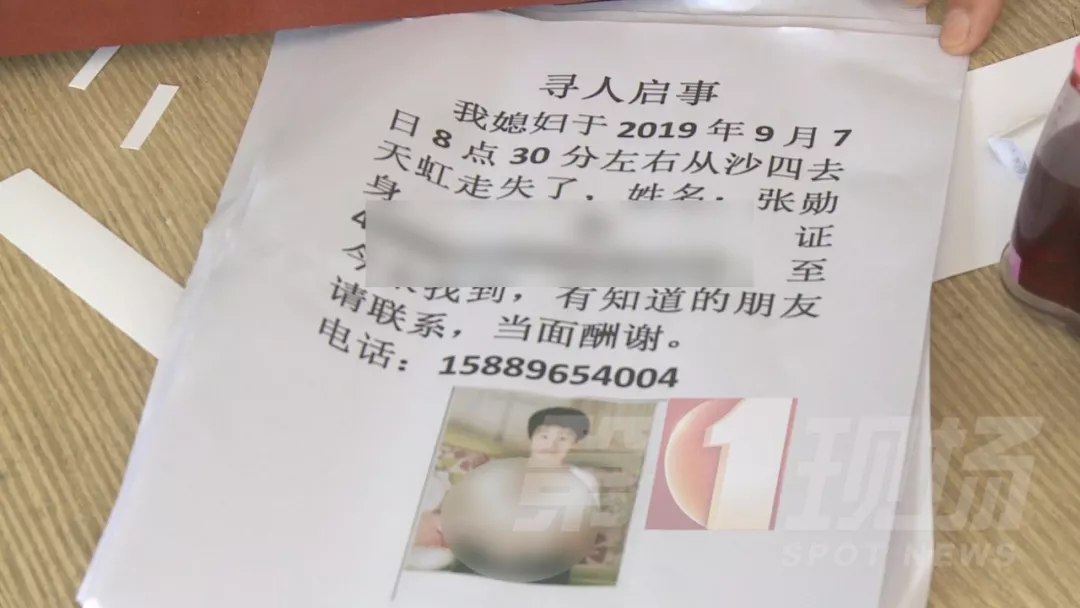 寻人启事
我媳妇于 2019 年 9 月 7
日 8 点 30 分左右从沙四去
天虹走失了，姓名：张勋
身
4 证
今 至
找到，有知道的朋友
请联系，当面酬谢。
电话：15889654004
第1现场
SPOT NEWS